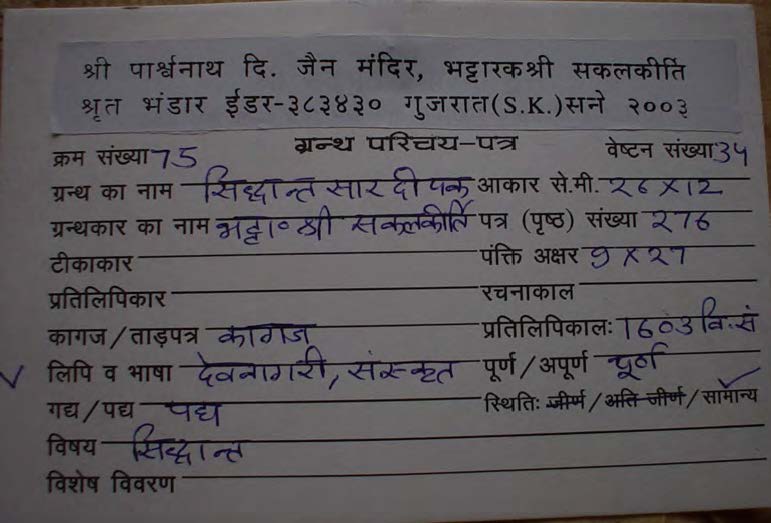 श्री पार्श्वनाथ दि. जैन मंदिर, भट्टारकश्री सकलकीर्ति
श्रृत भंडार ईडर-३८३४३० गुजरात(S.K.)सने २००३
ग्रन्थ परिचय-पत्र
क्रम संख्या 75 वेष्टन संख्या 34
ग्रन्थ का नाम सिद्धान्तसारदीपक आकार से.मी. 26 X 12
ग्रन्थकार का नाम भट्टा० श्री सकलकीर्ति पत्र (पृष्ठ) संख्या 276
टीकाकार पंक्ति अक्षर 9 X 27
प्रतिलिपिकार रचनाकाल
कागज/ताड़पत्र कागज प्रतिलिपिकालः 1603 वि.सं
लिपि व भाषा देवनागरी, संस्कृत पूर्ण/अपूर्ण पूर्ण
गद्य/पद्य पद्य स्थितिः जीर्ण/अति जीर्ण/सामान्य
विषय सिद्धान्त
विशेष विवरण